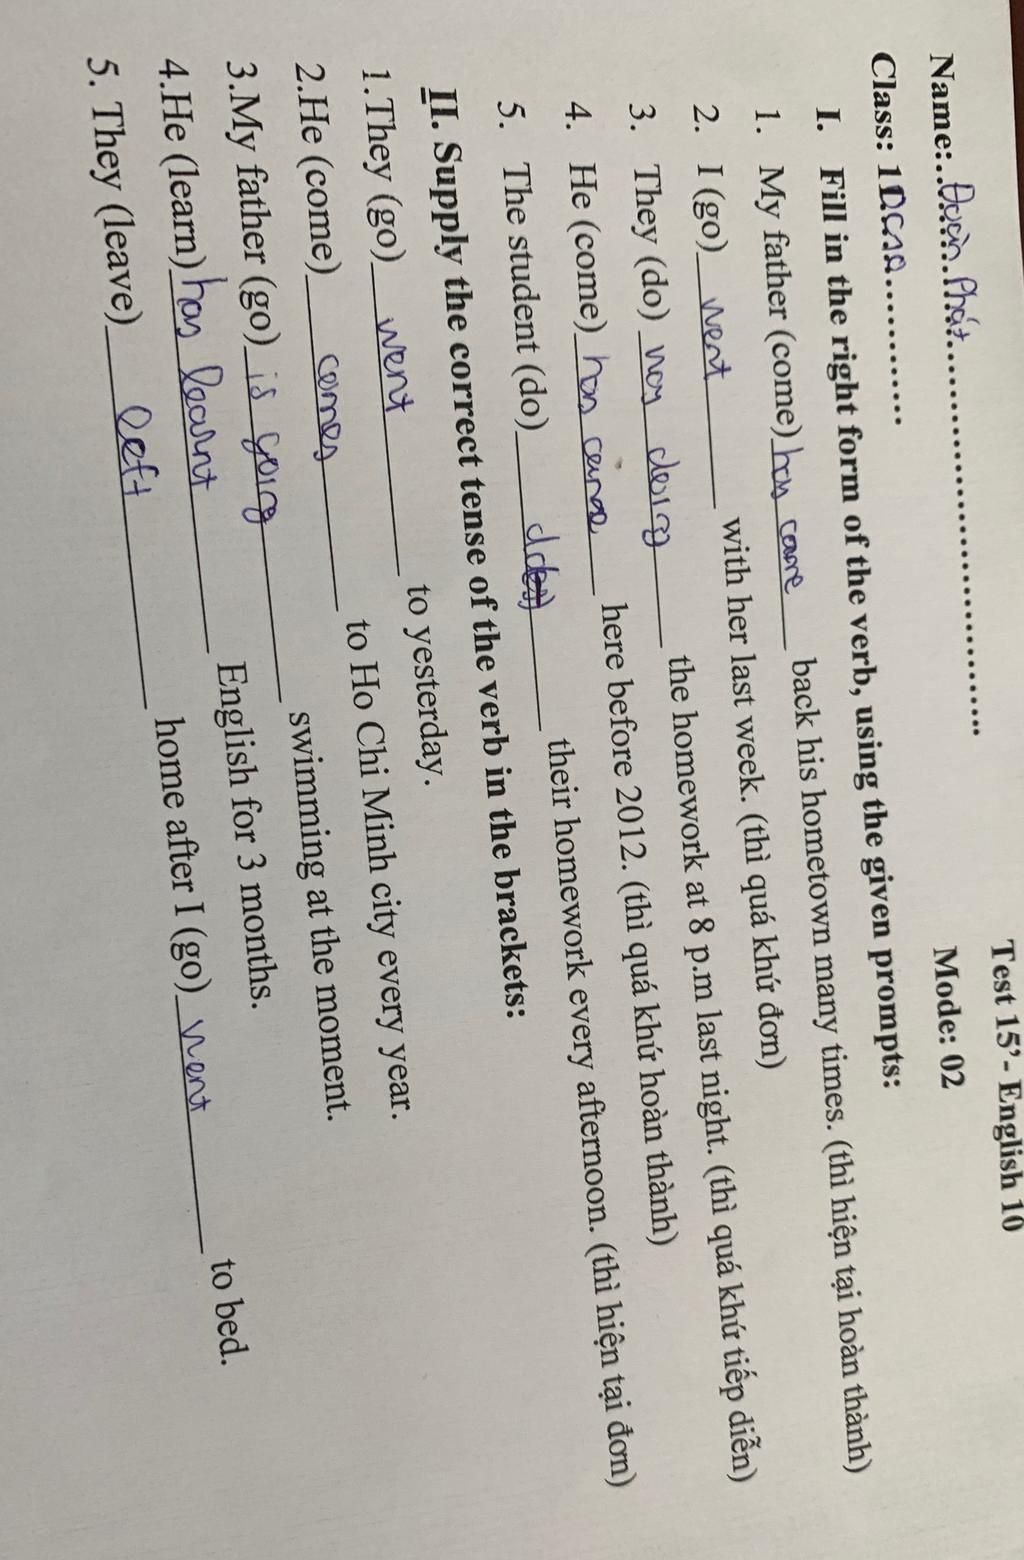 Test 15’- English 10
Name:..Đoàn Phát
Mode: 02
Class: 10CA2
I. Fill in the right form of the verb, using the given prompts:
1. My father (come) has came back his hometown many times. (thì hiện tại hoàn thành)
2. I (go) went with her last week. (thì quá khứ đơn)
3. They (do) was doing the homework at 8 p.m last night. (thì quá khứ tiếp diễn)
4. He (come) has came here before 2012. (thì quá khứ hoàn thành)
5. The student (do) their homework every afternoon. (thì hiện tại đơn)
II. Supply the correct tense of the verb in the brackets:
1.They (go) went to yesterday.
2.He (come) comes to Ho Chi Minh city every year.
3.My father (go) is going swimming at the moment.
4.He (learn) has learnt English for 3 months.
5. They (leave) left home after I (go) went to bed.